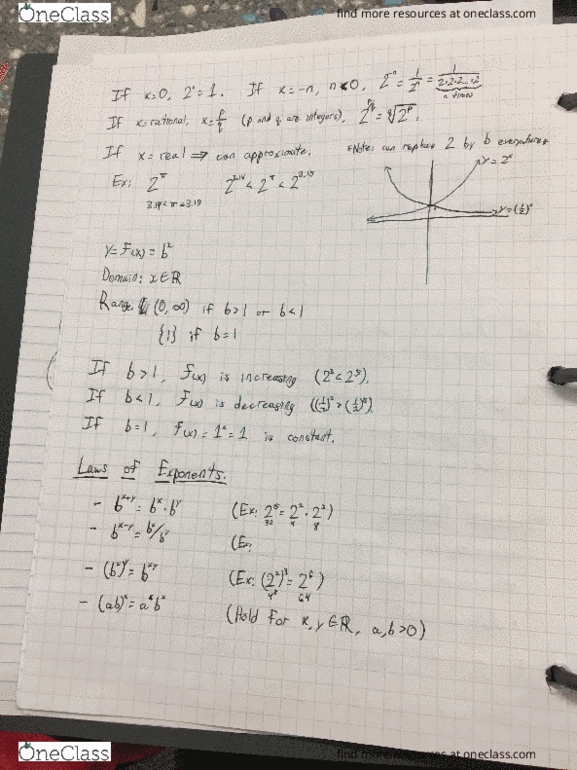 OneClass
find more resources at oneclass.com
If x=0, 2⁰=1. If x=-n, n<0, 2⁻ⁿ = 1/2ⁿ = 1/(2·2·2...·2) n times
If x=rational, x=p/q (p and q are integers), 2^(p/q) = q√2^p.
If x=real ⇒ can approximate.
*Note: can replace 2 by b everywhere*
Ex: 2^π 2^3.14 < 2^π < 2^3.15
3.14<π<3.15
y=2ˣ
y=(1/2)ˣ
y=f(x)=bˣ
Domain: x∈ℝ
Range: (0,∞) if b>1 or b<1
{1} if b=1
If b>1, f(x) is increasing (2³<2⁵).
If b<1, f(x) is decreasing
If b=1, f(x)=1ˣ=1 is constant.
Laws of Exponents:
- b^(x+y) = bˣ·b^y (Ex: 2⁵=2²·2³)
32 4 8
- b^(x-y) = bˣ/b^y (Ex:
- (bˣ)^y = b^(xy) (Ex: (2²)³=2⁶)
4³ 64
- (ab)ˣ=aˣbˣ (Hold for x,y∈ℝ, a,b>0)
OneClass
find more resources at oneclass.com